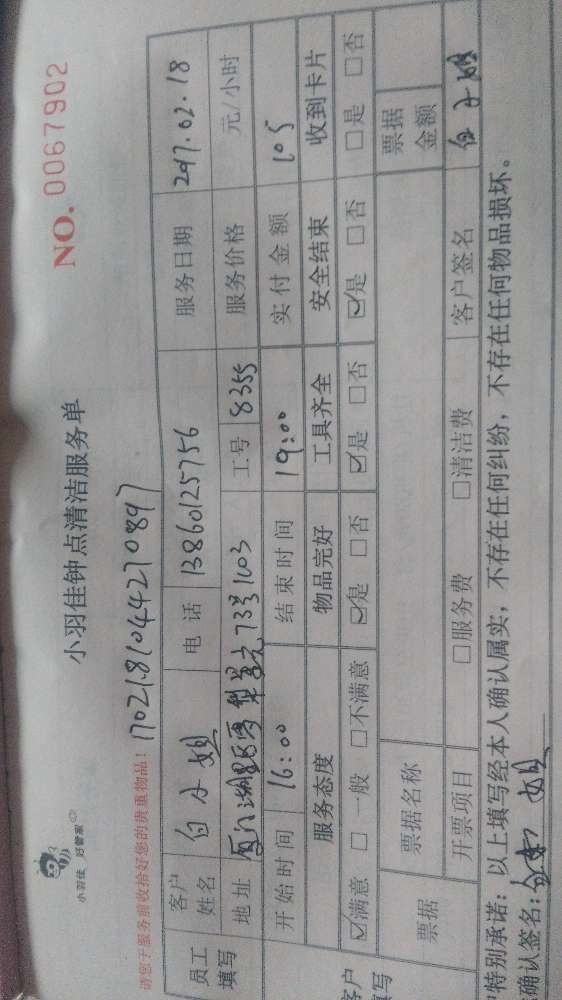 小羽佳 好管家
小羽佳钟点清洁服务单
NO. 0067902
请您于服务前收拾好您的贵重物品!
员工填写 客户姓名 白小姐 电话 13860125756 服务日期 2017.02.18
地址 73号103 工号 8355 服务价格 元/小时
开始时间 16:00 结束时间 19:00 实付金额 105
客户填写 服务态度 物品完好 工具齐全 安全结束 收到卡片
☑满意 □一般 □不满意 ☑是 □否 ☑是 □否 ☑是 □否 □是 □否
票据 票据名称 票据金额
开票项目 □服务费 □清洁费 客户签名 白小姐
特别承诺:以上填写经本人确认属实,不存在任何纠纷,不存在任何物品损坏。
确认签名: